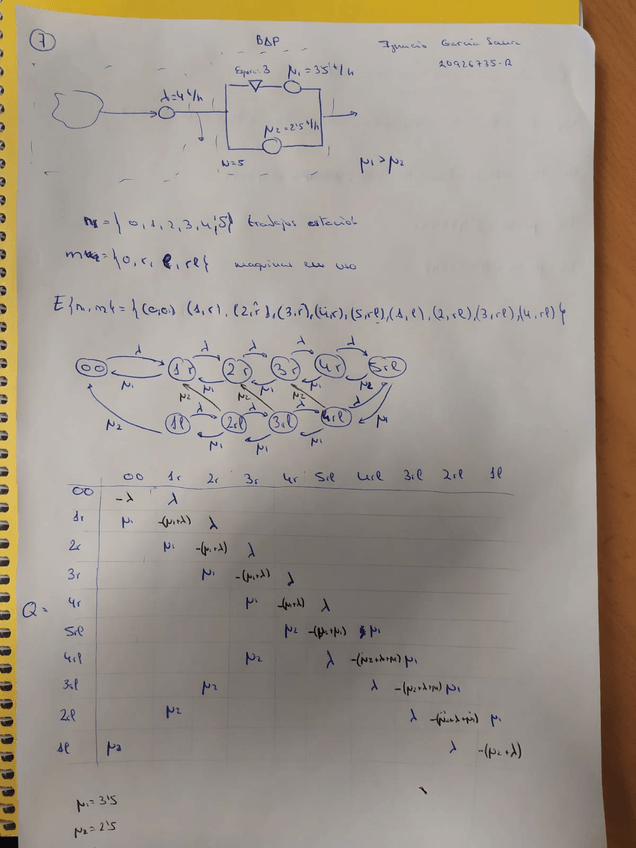 7 BDP Ignacio García
20926735-R
λ=4 t/h Espera: 3 μ1 = 3'5 t/h
μ2 = 2'5 t/h
N=5 μ1 > μ2
n = { 0, 1, 2, 3, 4, 5 } trabajos estación
m = { 0, r, l, rl } maquinas en uso
E{n, m} = { (0,0) (1,r), (2,r), (3,r), (4,r), (5,rl), (1,l), (2,rl), (3,rl), (4,rl) }
λ λ λ λ λ
00 1r 2r 3r 4r 5rl
μ1 μ1 μ1 μ1 μ2
μ2 μ2 μ2
λ λ λ λ
μ2 1l 2rl 3rl 4rl μ1
μ1 μ1 μ1
00 1r 2r 3r 4r 5rl 4rl 3rl 2rl 1l
00 -λ λ
1r μ1 -(μ1+λ) λ
2r μ1 -(μ1+λ) λ
3r μ1 -(μ1+λ) λ
4r μ1 -(μ1+λ) λ
Q=
5rl μ2 -(μ2+μ1) μ1
4rl μ2 λ -(μ2+λ+μ1) μ1
3rl μ2 λ -(μ2+λ+μ1) μ1
2rl μ2 λ -(μ2+λ+μ1) μ1
1l μ2 λ -(μ2+λ)
μ1 = 3'5
μ2 = 2'5